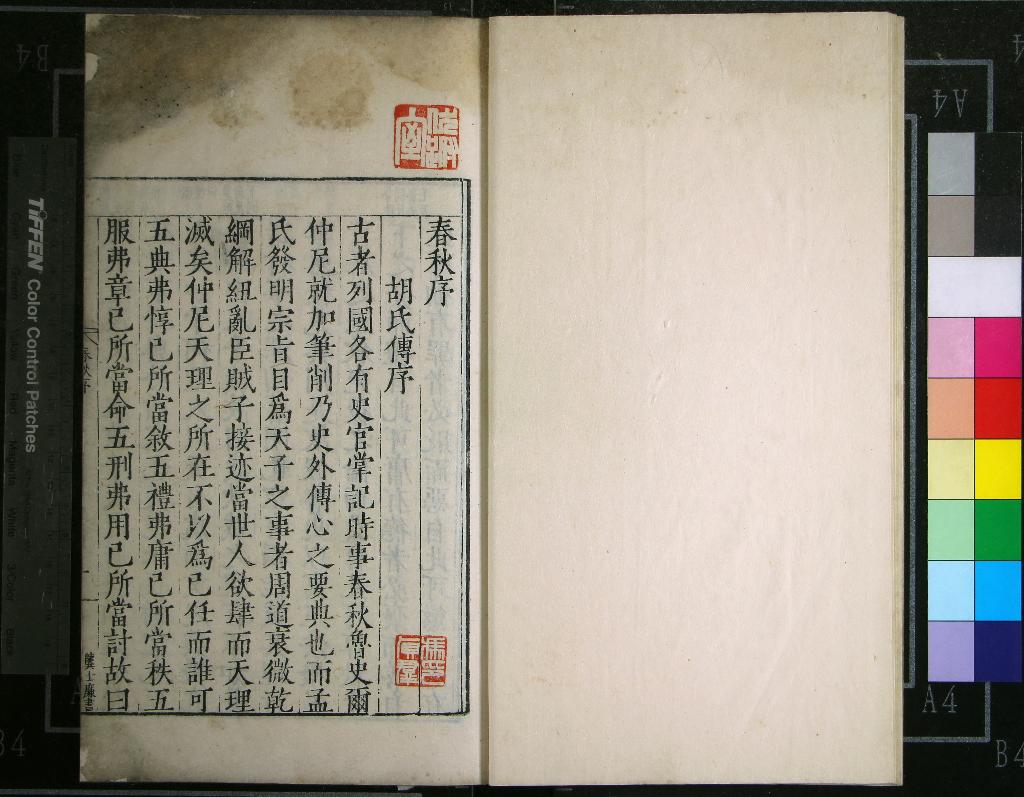 春秋序
胡氏傳序
古者列國各有史官掌記時事春秋魯史爾
仲尼就加筆削乃史外傳心之要典也而孟
氏發明宗旨目爲天子之事者周道衰微乾
綱解紐亂臣賊子接迹當世人欲肆而天理
滅矣仲尼天理之所在不以爲已任而誰可
五典弗惇已所當敘五禮弗庸已所當秩五
服弗章已所當命五刑弗用已所當討故曰
春秋序
一
TIFFEN Color Control Patches
B4
A4
A4
B4